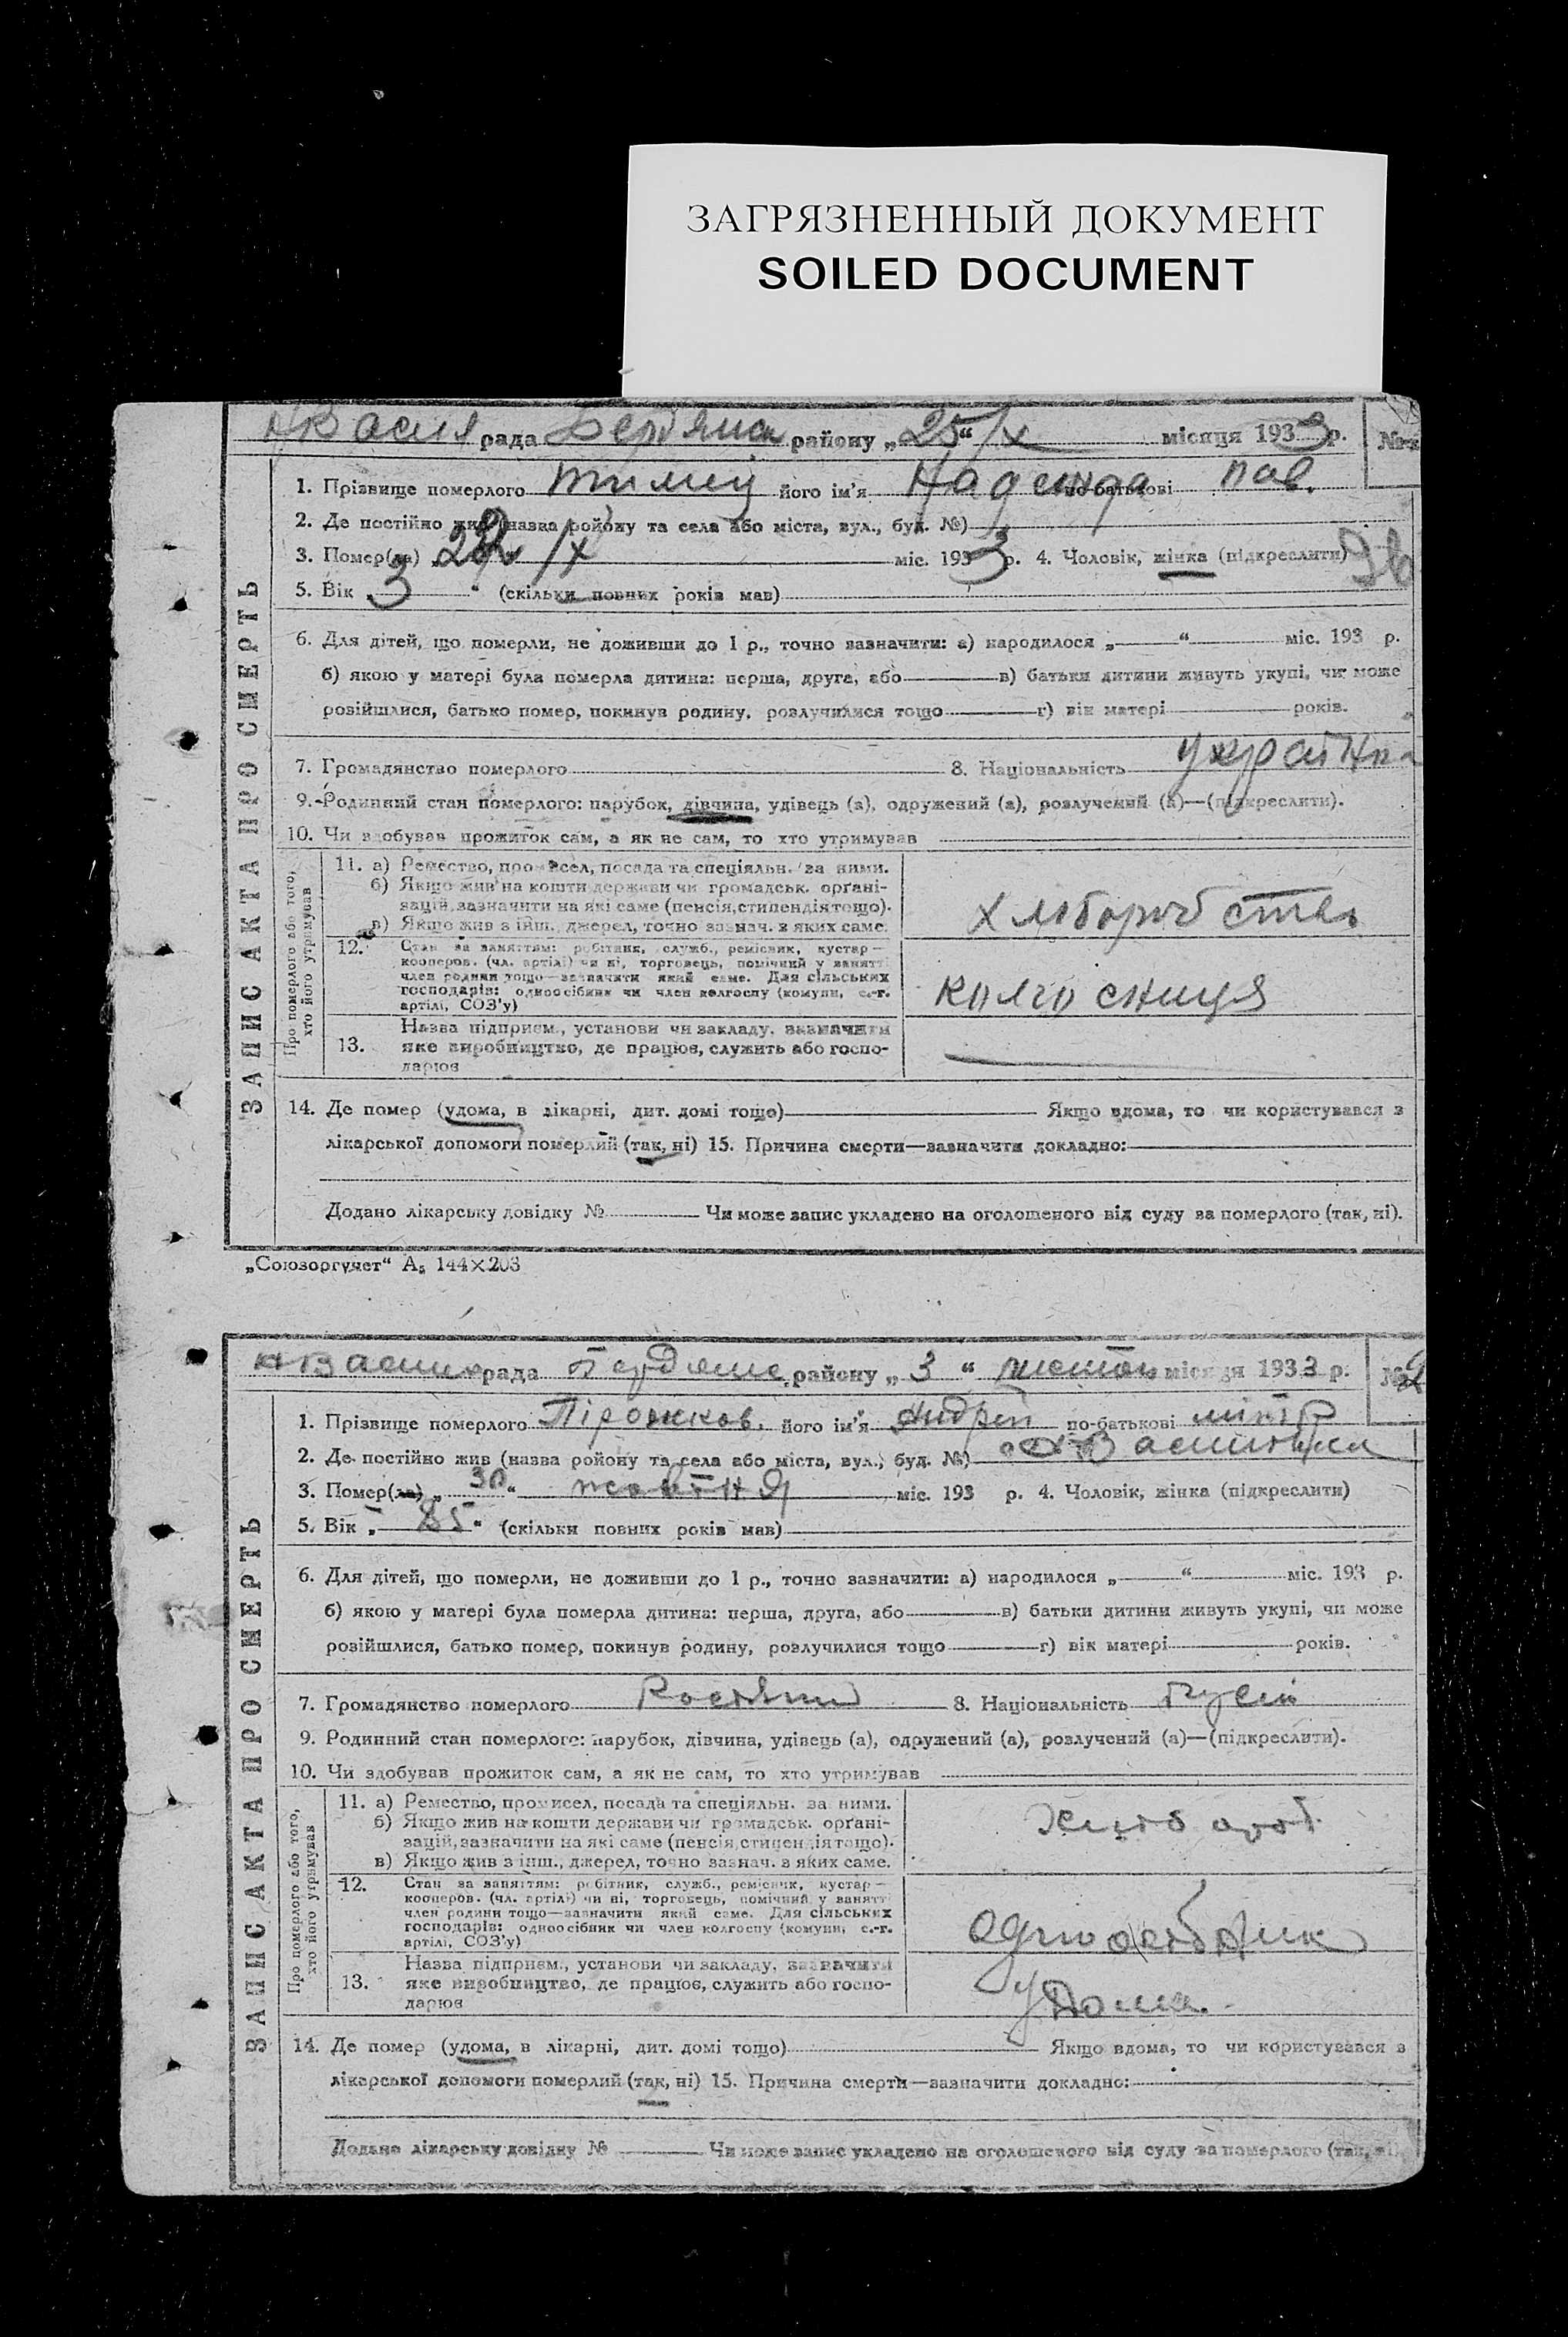 ЗАГРЯЗНЕННЫЙ ДОКУМЕНТ
SOILED DOCUMENT
рада районy „25“ /X місяця 1933 р. №
1. Прізвище померлого його ім'я Надежда по-батькові пав.
2. Де постійно жив (назва ройону та села або міста, вул., буд. №)
3. Помер(ла) /X міс. 1933 р. 4. Чоловік, жінка (підкреслити)
5. Вік „3“ (скільки повних років мав)
6. Для дітей, що померли, не доживши до 1 р., точно зазначити: а) народилося „ “ міс. 193 р.
б) якою у матері була померла дитина: перша, друга, або в) батьки дитини живуть укупі, чи може
розійшлися, батько помер, покинув родину, розлучилися тощо г) вік матері років.
7. Громадянство померлого 8. Національність
9. Родинний стан померлого: парубок, дівчина, удівець (а), одружений (а), розлучений (а)—(підкреслити).
10. Чи здобував прожиток сам, а як не сам, то хто утримував
ЗАПИС АКТА ПРО СМЕРТЬ
Про померлого або того, хто його утримував
11. а) Ремество, промисел, посада та спеціяльн. за ними.
б) Якщо жив на кошти держави чи громадськ. органі-
зацій, зазначити на які саме (пенсія, стипендія тощо).
в) Якщо жив з інш., джерел, точно зазнач. з яких саме.
12. Стан за заняттям: робітник, служб., ремісник, кустар—
кооперов. (чл. артілі) чи ні, торговець, помічний у занятті
член родини тощо—зазначити який саме. Для сільських
господарів: одноосібник чи член колгоспу (комуни, с.-г.
артілі, СОЗ'у)
колгосниця
13. Назва підприєм., установи чи закладу, зазначити
яке виробництво, де працює, служить або госпо-
дарює
14. Де помер (удома, в лікарні, дит. домі тощо) Якщо вдома, то чи користувався з
лікарської допомоги померлий (так, ні) 15. Причина смерти—зазначити докладно:
Додано лікарську довідку № Чи може запис укладено на оголошеного від суду за померлого (так, ні).
„Союзоргучет“ А5 144×203
рада району „3“ місяця 1933 р. №2
1. Прізвище померлого Пірожков його ім'я Андрей по-батькові
2. Де постійно жив (назва ройону та села або міста, вул., буд. №)
3. Помер(ла) „30“ жовтня міс. 193 р. 4. Чоловік, жінка (підкреслити)
5. Вік „85“ (скільки повних років мав)
6. Для дітей, що померли, не доживши до 1 р., точно зазначити: а) народилося „ “ міс. 193 р.
б) якою у матері була померла дитина: перша, друга, або в) батьки дитини живуть укупі, чи може
розійшлися, батько помер, покинув родину, розлучилися тощо г) вік матері років.
7. Громадянство померлого 8. Національність
9. Родинний стан померлого: парубок, дівчина, удівець (а), одружений (а), розлучений (а)—(підкреслити).
10. Чи здобував прожиток сам, а як не сам, то хто утримував
ЗАПИС АКТА ПРО СМЕРТЬ
Про померлого або того, хто його утримував
11. а) Ремество, промисел, посада та спеціяльн. за ними.
б) Якщо жив на кошти держави чи громадськ. органі-
зацій, зазначити на які саме (пенсія, стипендія тощо).
в) Якщо жив з інш., джерел, точно зазнач. з яких саме.
12. Стан за заняттям: робітник, служб., ремісник, кустар—
кооперов. (чл. артілі) чи ні, торговець, помічний у занятті
член родини тощо—зазначити який саме. Для сільських
господарів: одноосібник чи член колгоспу (комуни, с.-г.
артілі, СОЗ'у)
13. Назва підприєм., установи чи закладу, зазначити
яке виробництво, де працює, служить або госпо-
дарює
удома.
14. Де помер (удома, в лікарні, дит. домі тощо) Якщо вдома, то чи користувався з
лікарської допомоги померлий (так, ні) 15. Причина смерти—зазначити докладно:
Додано лікарську довідку № Чи може запис укладено на оголошеного від суду за померлого (так, ні).